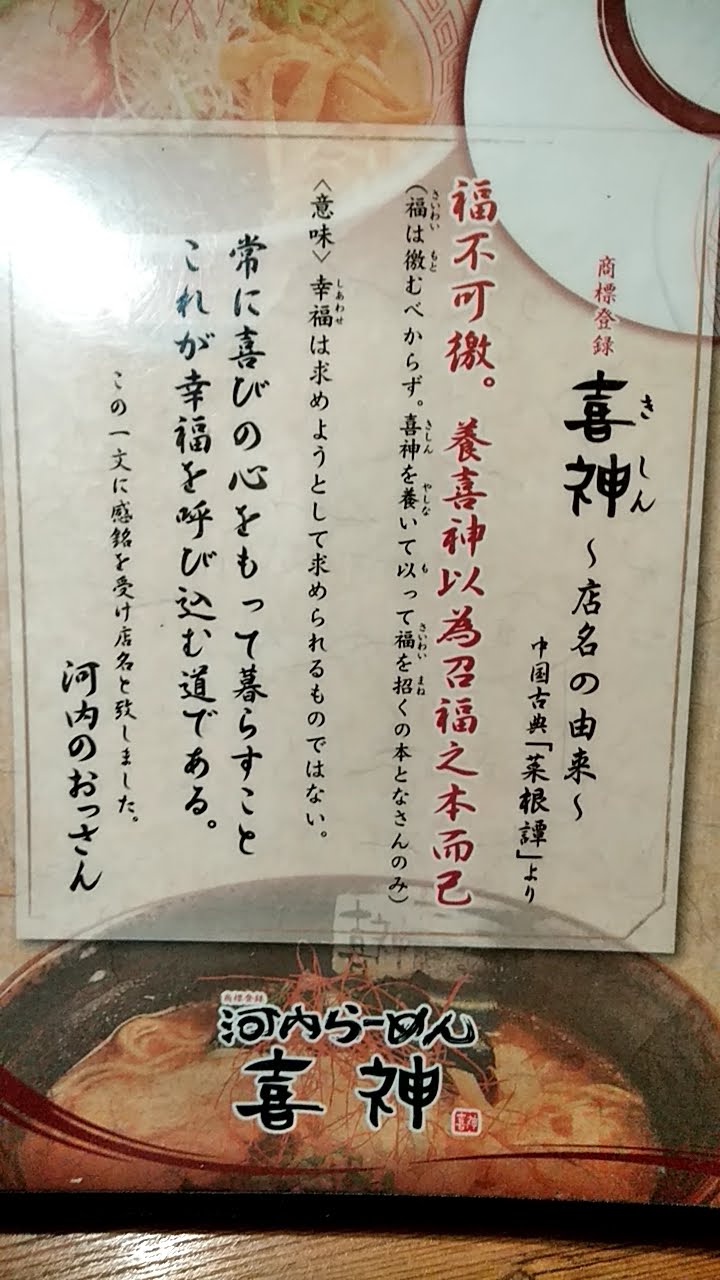 商標登録
喜神 ～店名の由来～
きしん
中国古典「菜根譚」より
福不可徼。養喜神以為召福之本而已
(福は徼むべからず。喜神を養いて以って福を招くの本となさんのみ)
さいわい もと きしん やしな も さいわい まね
〈意味〉幸福は求めようとして求められるものではない。
しあわせ
常に喜びの心をもって暮らすこと
これが幸福を呼び込む道である。
この一文に感銘を受け店名と致しました。
河内のおっさん
喜神
商標登録
河内らーめん
喜神
喜神